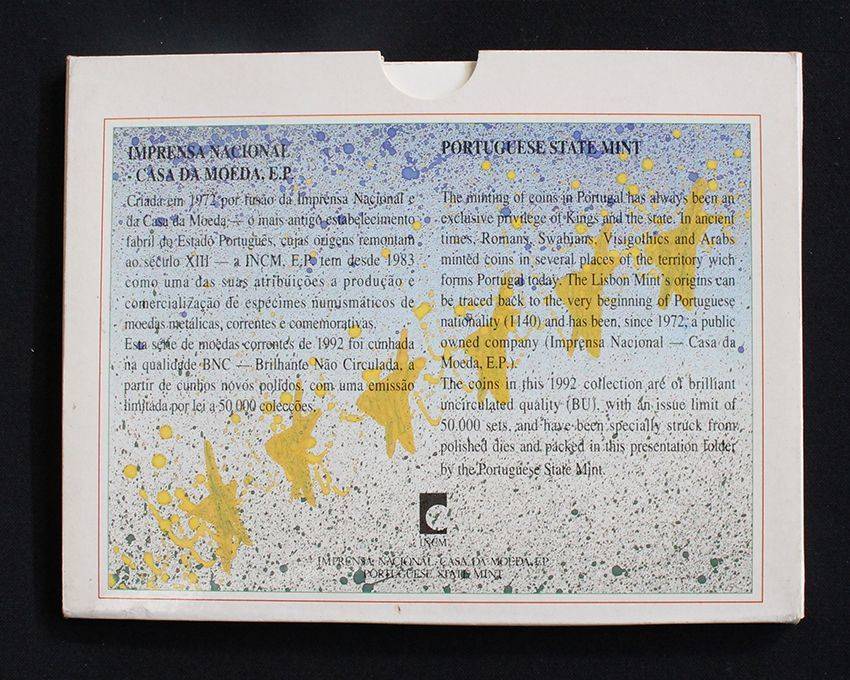 IMPRENSA NACIONAL
- CASA DA MOEDA, E.P.
Criada em 1972 por fusão da Imprensa Nacional e
da Casa da Moeda — o mais antigo estabelecimento
fabril do Estado Português, cujas origens remontam
ao século XIII — a INCM, E.P. tem desde 1983
como uma das suas atribuições a produção e
comercialização de espécimes numismáticos de
moedas metálicas, correntes e comemorativas.
Esta série de moedas correntes de 1992 foi cunhada
na qualidade BNC — Brilhante Não Circulada, a
partir de cunhos novos polidos, com uma emissão
limitada por lei a 50.000 colecções.
PORTUGUESE STATE MINT
The minting of coins in Portugal has always been an
exclusive privilege of Kings and the state. In ancient
times, Romans, Swabians, Visigothics and Arabs
minted coins in several places of the territory wich
forms Portugal today. The Lisbon Mint's origins can
be traced back to the very beginning of Portuguese
nationality (1140) and has been, since 1972, a public
owned company (Imprensa Nacional — Casa da
Moeda, E.P.).
The coins in this 1992 collection are of brilliant
uncirculated quality (BU), with an issue limit of
50.000 sets, and have been specially struck from
polished dies and packed in this presentation folder
by the Portuguese State Mint.
INCM
IMPRENSA NACIONAL-CASA DA MOEDA, E.P.
PORTUGUESE STATE MINT